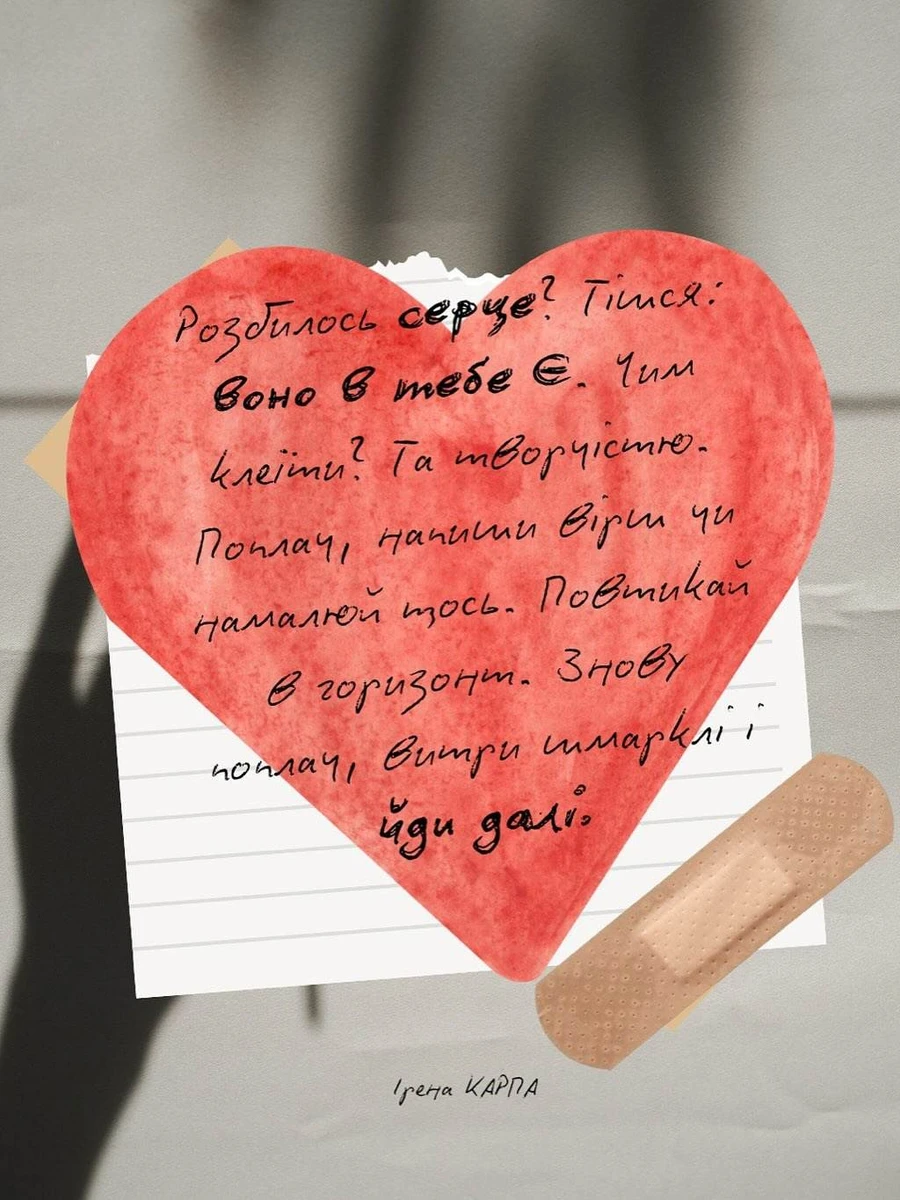 Розбилось серце? Тішся:
воно в тебе Є. Чим
клеїти? Та творчістю.
Поплач, напиши вірш чи
намалюй щось. Повтикай
в горизонт. Знову
поплач, витри шмарклі і
йди далі.
Ірена КАРПА